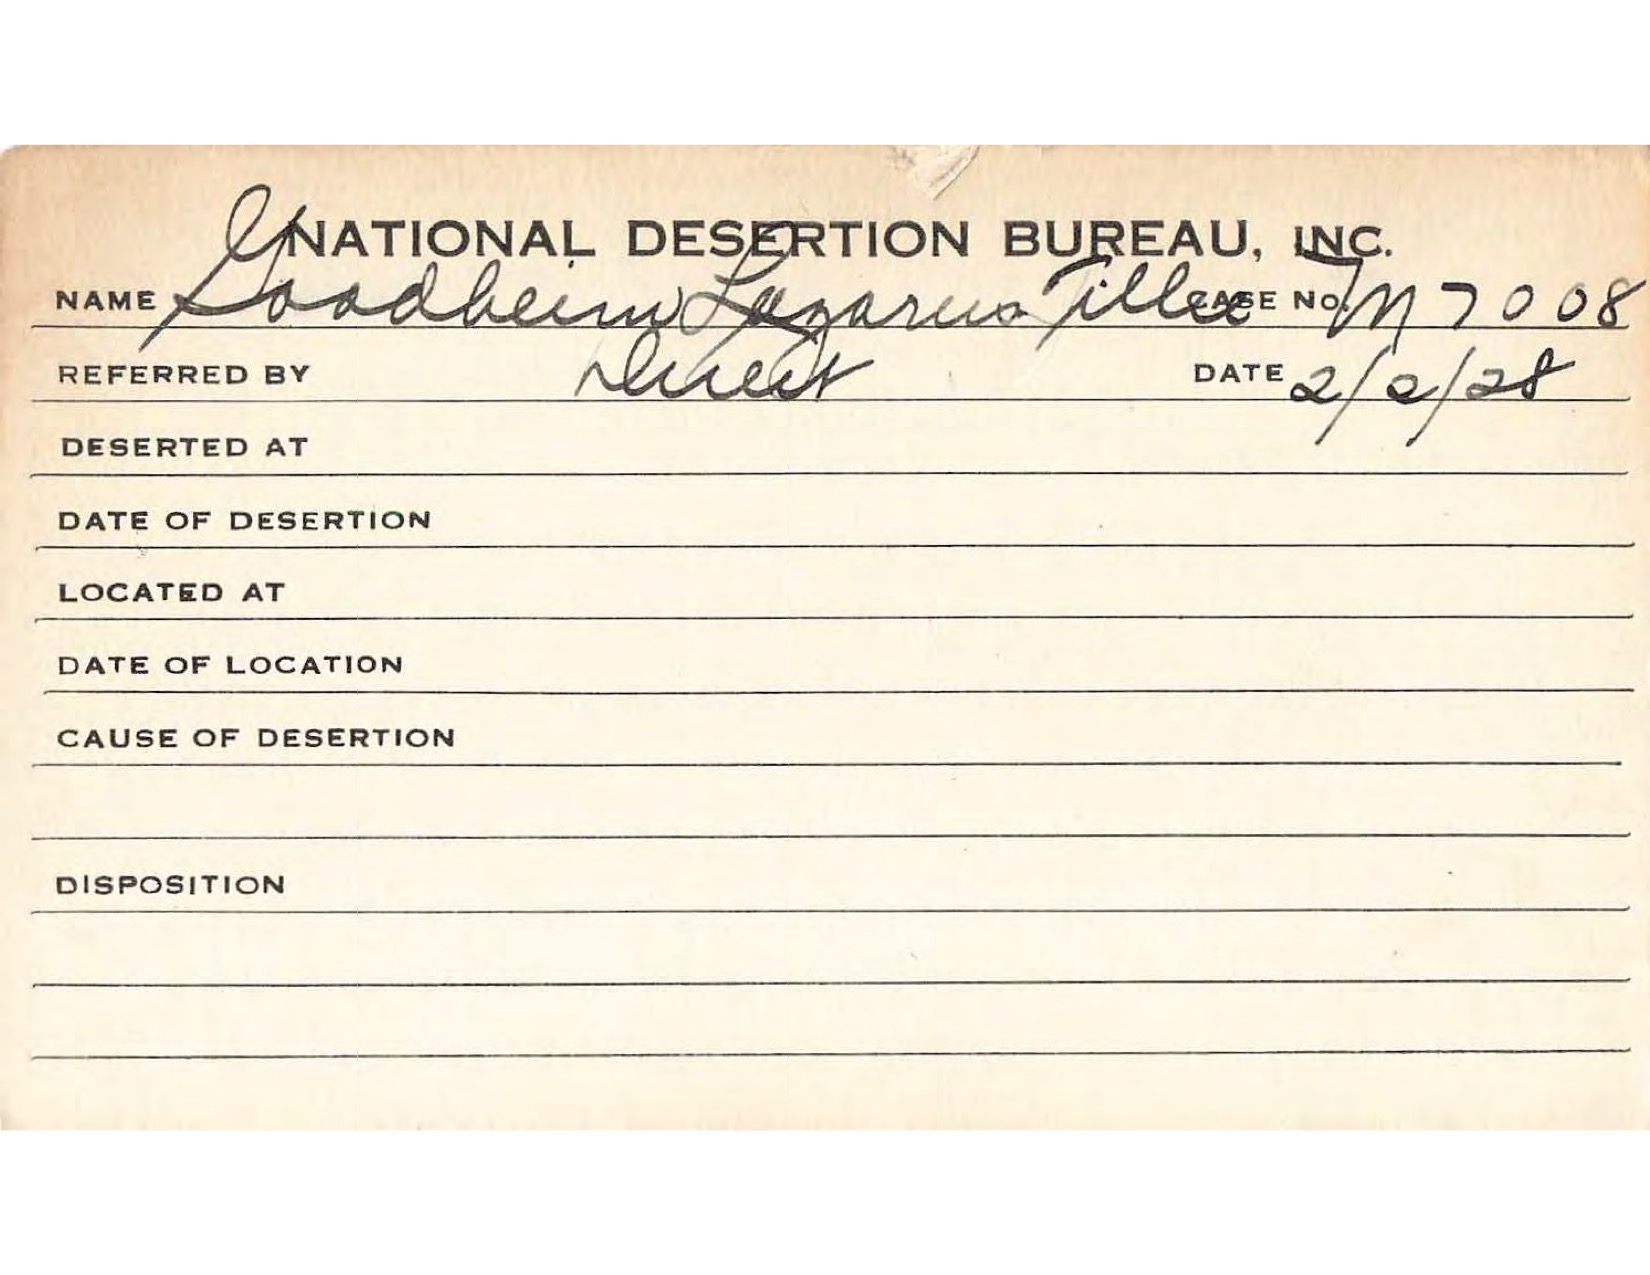 NATIONAL DESERTION BUREAU, INC.
NAME Goodheim Lazarus Tillie CASE NO. M7008
REFERRED BY Direct DATE 2/2/28
DESERTED AT
DATE OF DESERTION
LOCATED AT
DATE OF LOCATION
CAUSE OF DESERTION
DISPOSITION